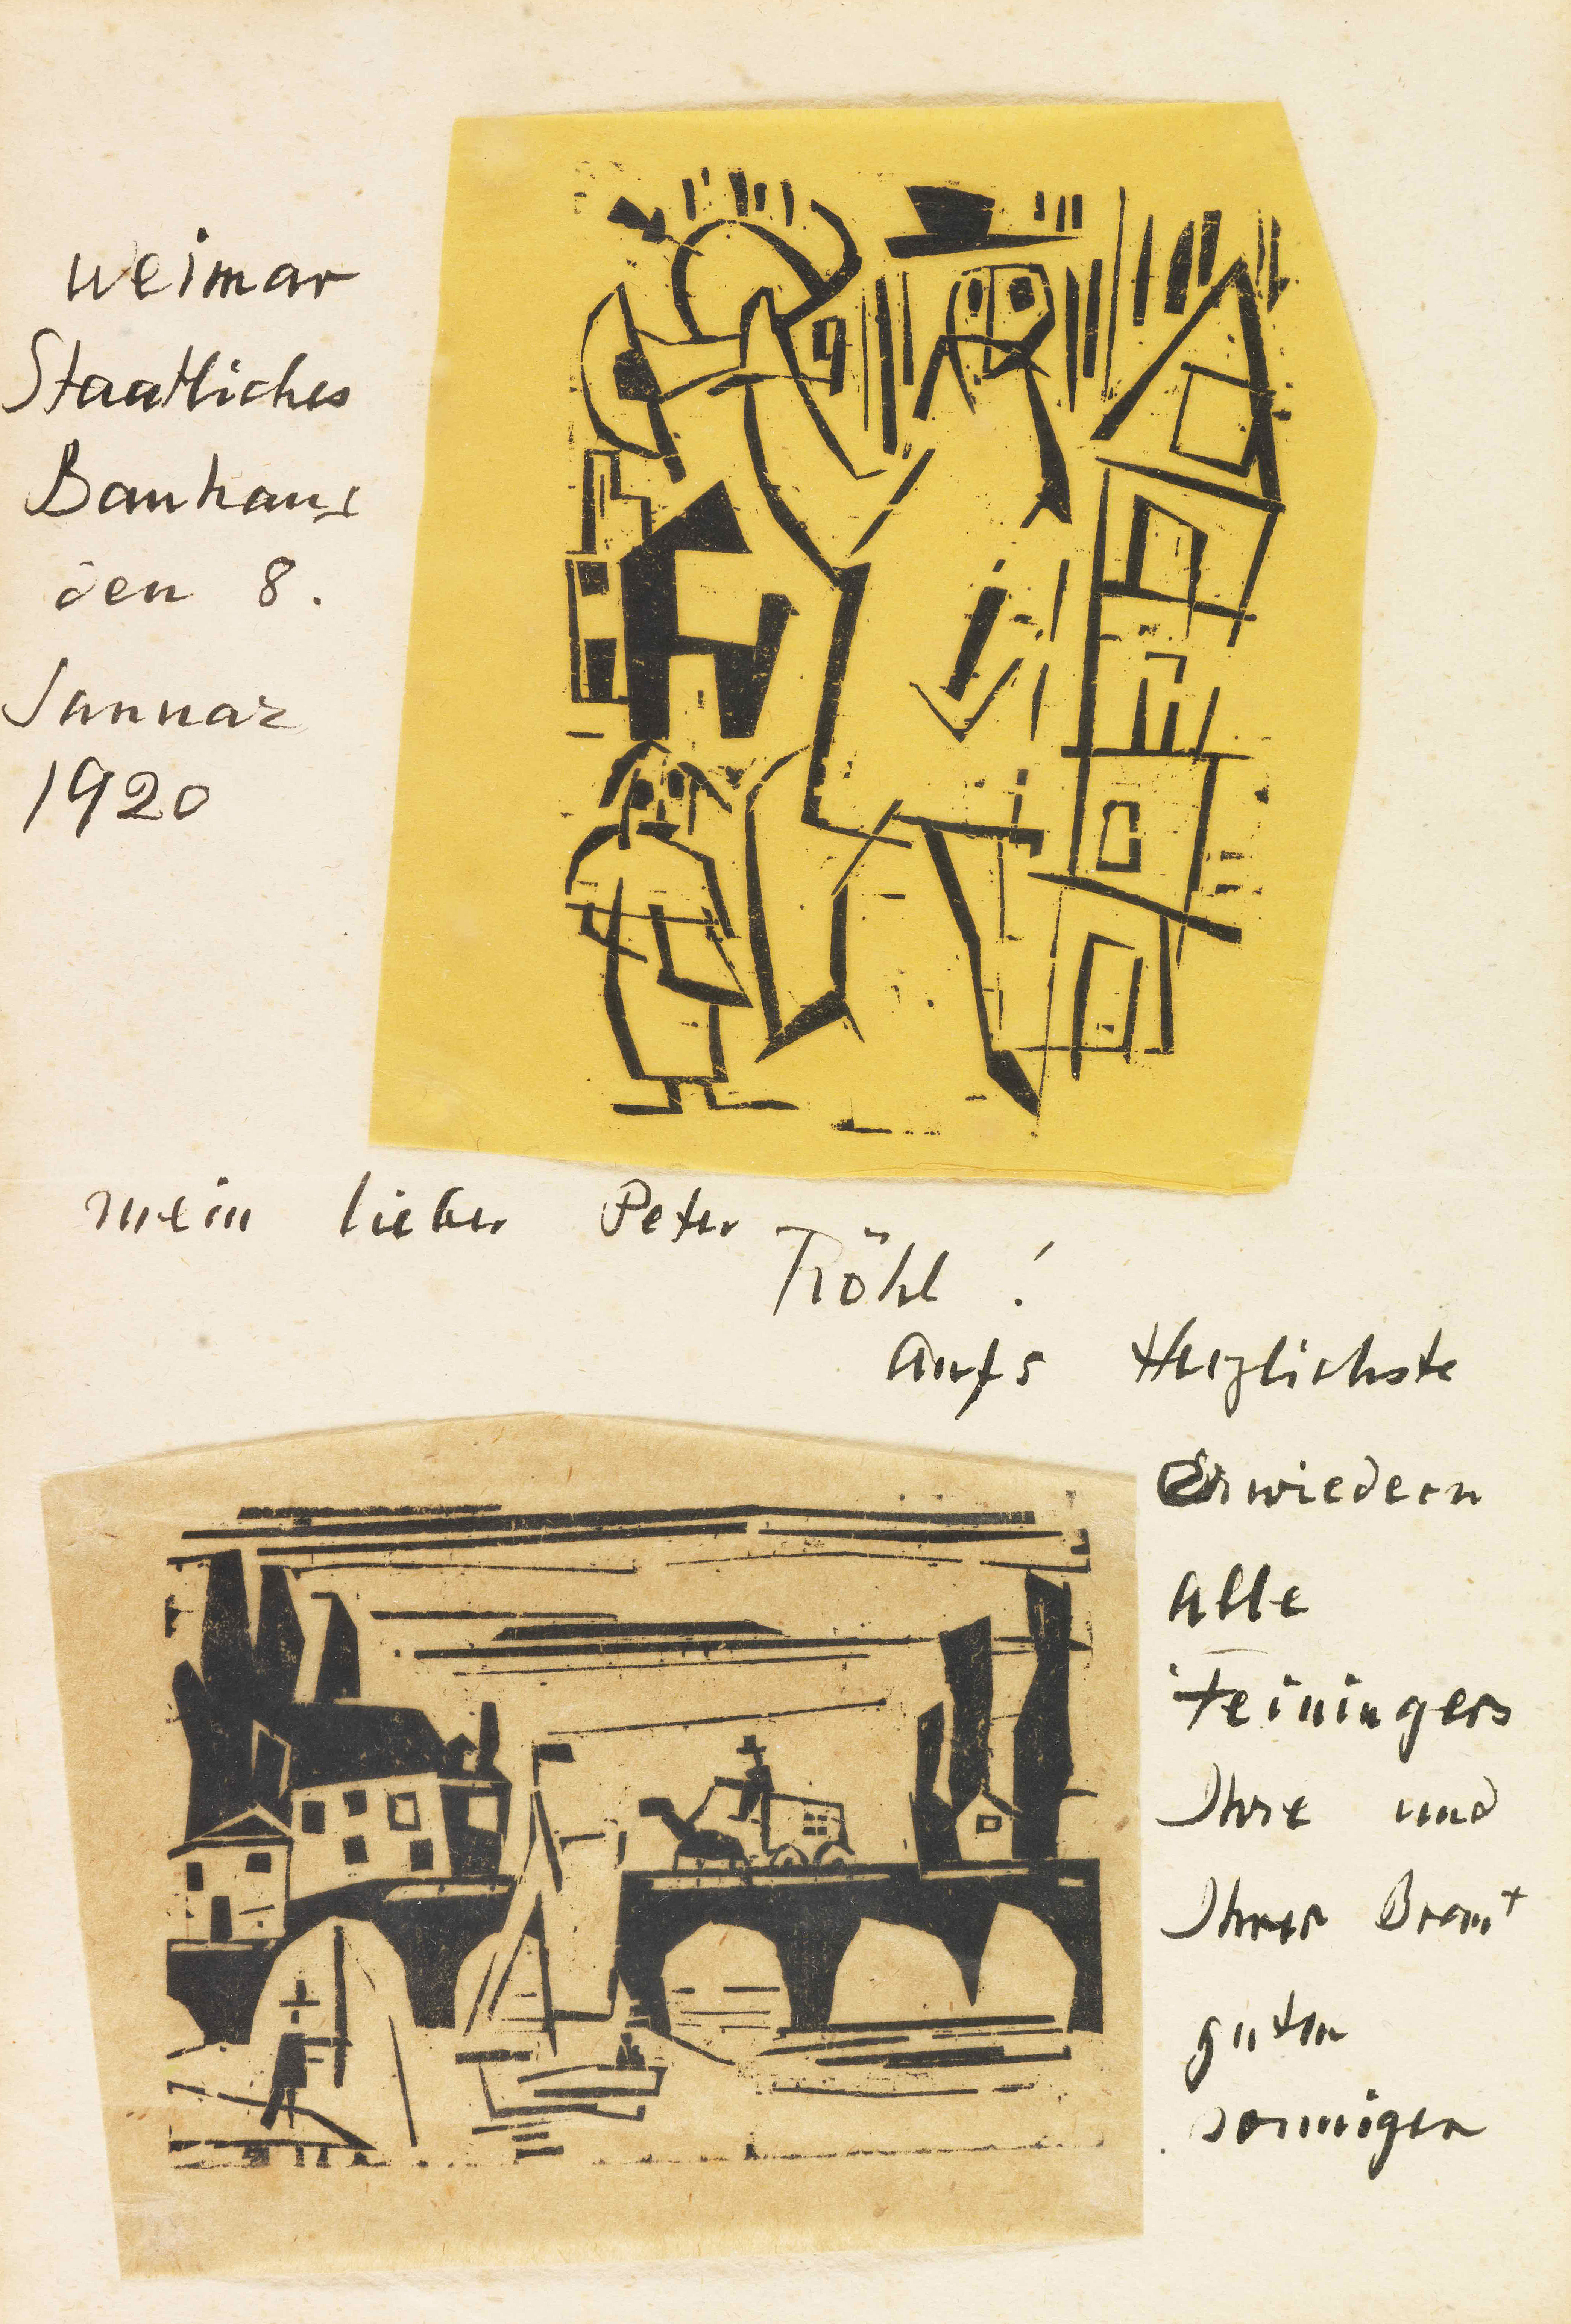 Weimar
Staatliches
Bauhaus
den 8.
Januar
1920
mein lieber Peter
Röhl !
Aufs Herzlichste
Erwiedern
Alle
Feiningers
Ihre und
Ihrer Braut
guten
sonnigen